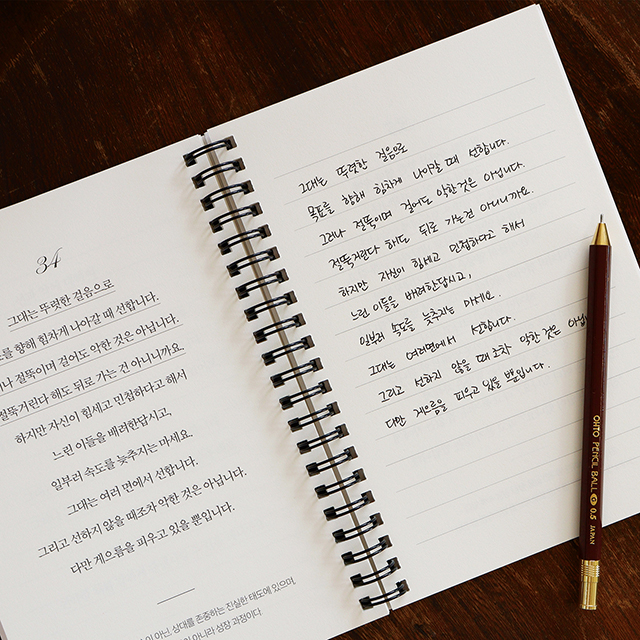 34
그대는 뚜렷한 걸음으로
를 향해 힘차게 나아갈 때 선합니다.
나 절뚝이며 걸어도 악한 것은 아닙니다.
절뚝거린다 해도 뒤로 가는 건 아니니까요.
하지만 자신이 힘세고 민첩하다고 해서
느린 이들을 배려한답시고,
일부러 속도를 늦추지는 마세요.
그대는 여러 면에서 선합니다.
그리고 선하지 않을 때조차 악한 것은 아닙니다.
다만 게으름을 피우고 있을 뿐입니다.
아닌, 상대를 존중하는 진실한 태도에 있으며,
아니라 성장 과정이다.
그대는 뚜렷한 걸음으로
목표를 향해 힘차게 나아갈 때 선합니다.
그러나 절뚝이며 걸어도 악한 것은 아닙니다.
절뚝거린다 해도 뒤로 가는건 아니니까요.
하지만 자신이 힘세고 민첩하다고 해서
느린 이들을 배려한답시고,
일부러 속도를 늦추지는 마세요.
그대는 여러면에서 선합니다.
그리고 선하지 않을 때조차 악한 것은 아닙
다만 게으름을 피우고 있을 뿐입니다.
OHTO PENCIL BALL 0.5 JAPAN